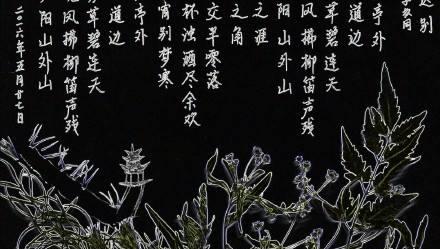 送别
叔同
亭外
道边
草碧连天
风拂柳笛声残
阳山外山
之涯
之角
交半零落
杯浊酒尽余欢
宵别梦寒
亭外
道边
草碧连天
风拂柳笛声残
阳山外山
二〇一六年五月廿七日